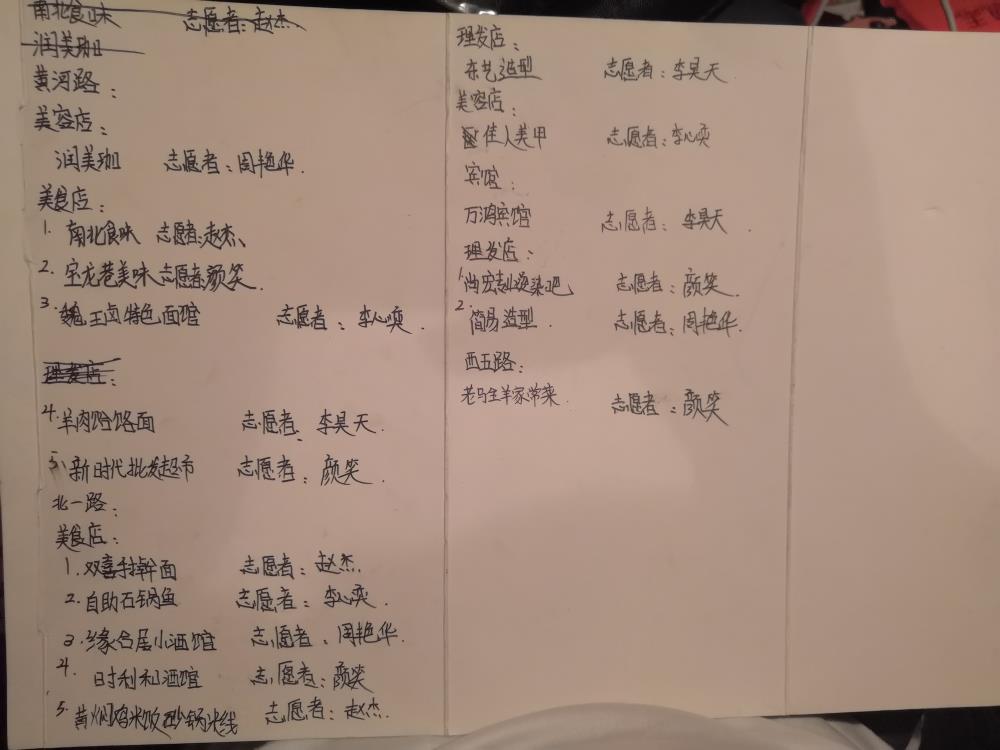 南北食味 志愿者：赵杰、
润美珈
黄河路：
美容店：
润美珈 志愿者：周艳华.
美食店：
1. 南北食味 志愿者：赵杰、
2. 宝龙巷美味 志愿者：颜笑.
3. 魏王卤特色面馆 志愿者：李心奕.
理发店：
4. 羊肉饸饹面 志愿者、李昊天.
5、新时代批发超市 志愿者：颜笑.
北一路：
美食店：
1. 双喜手擀面 志愿者：赵杰.
2. 自助石锅鱼 志愿者：李心奕.
3. 缘合居小酒馆 志愿者、周艳华.
4. 时利和酒馆 志愿者：颜笑
5. 黄焖鸡米饭砂锅米线 志愿者：赵杰.
理发店：
东艺造型 志愿者：李昊天.
美容店：
佳人美甲 志愿者：李心奕
宾馆：
万鸿宾馆 志愿者：李昊天.
理发店：
1. 尚宏烫染吧 志愿者：颜笑.
2. 简易造型. 志愿者：周艳华.
西五路：
老马生羊家常菜. 志愿者：颜笑